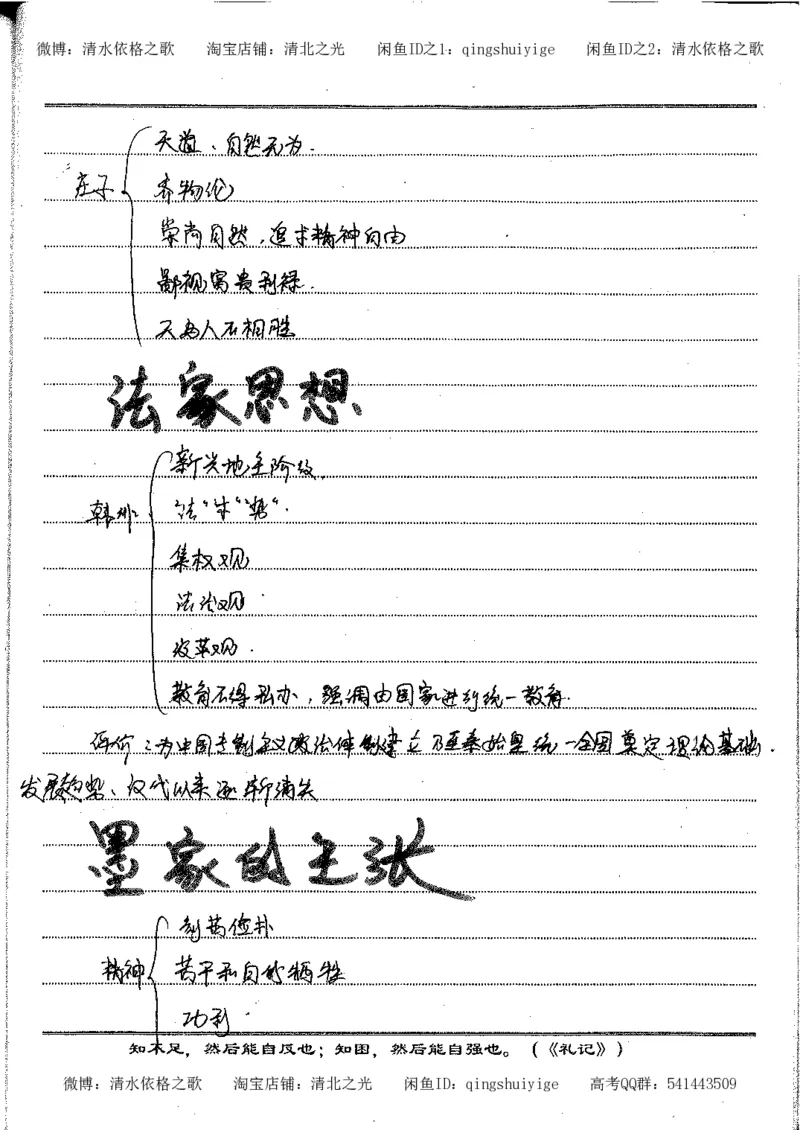 微博：清水依格之歌 淘宝店铺：清北之光 闲鱼ID之1：qingshuiyige 闲鱼ID之2：清水依格之歌
天道、自然无为.
庄子 齐物伦
崇尚自然，追求精神自由
鄙视富贵利禄.
天与人不相胜
法家思想
新兴地主阶级.
韩非: "法""术""势".
集权观
法治观
改革观.
教育不得私办，强调由国家进行统一教育.
评价：为中国专制主义政治体制建立乃至秦始皇统一全国奠定理论基础.
发展趋势、汉代以来逐渐消失
墨家的主张
刻苦俭朴
精神 苦干和自我牺牲
功利
知不足，然后能自反也；知困，然后能自强也。（《礼记》）
微博：清水依格之歌 淘宝店铺：清北之光 闲鱼ID：qingshuiyige 高考QQ群：541443509